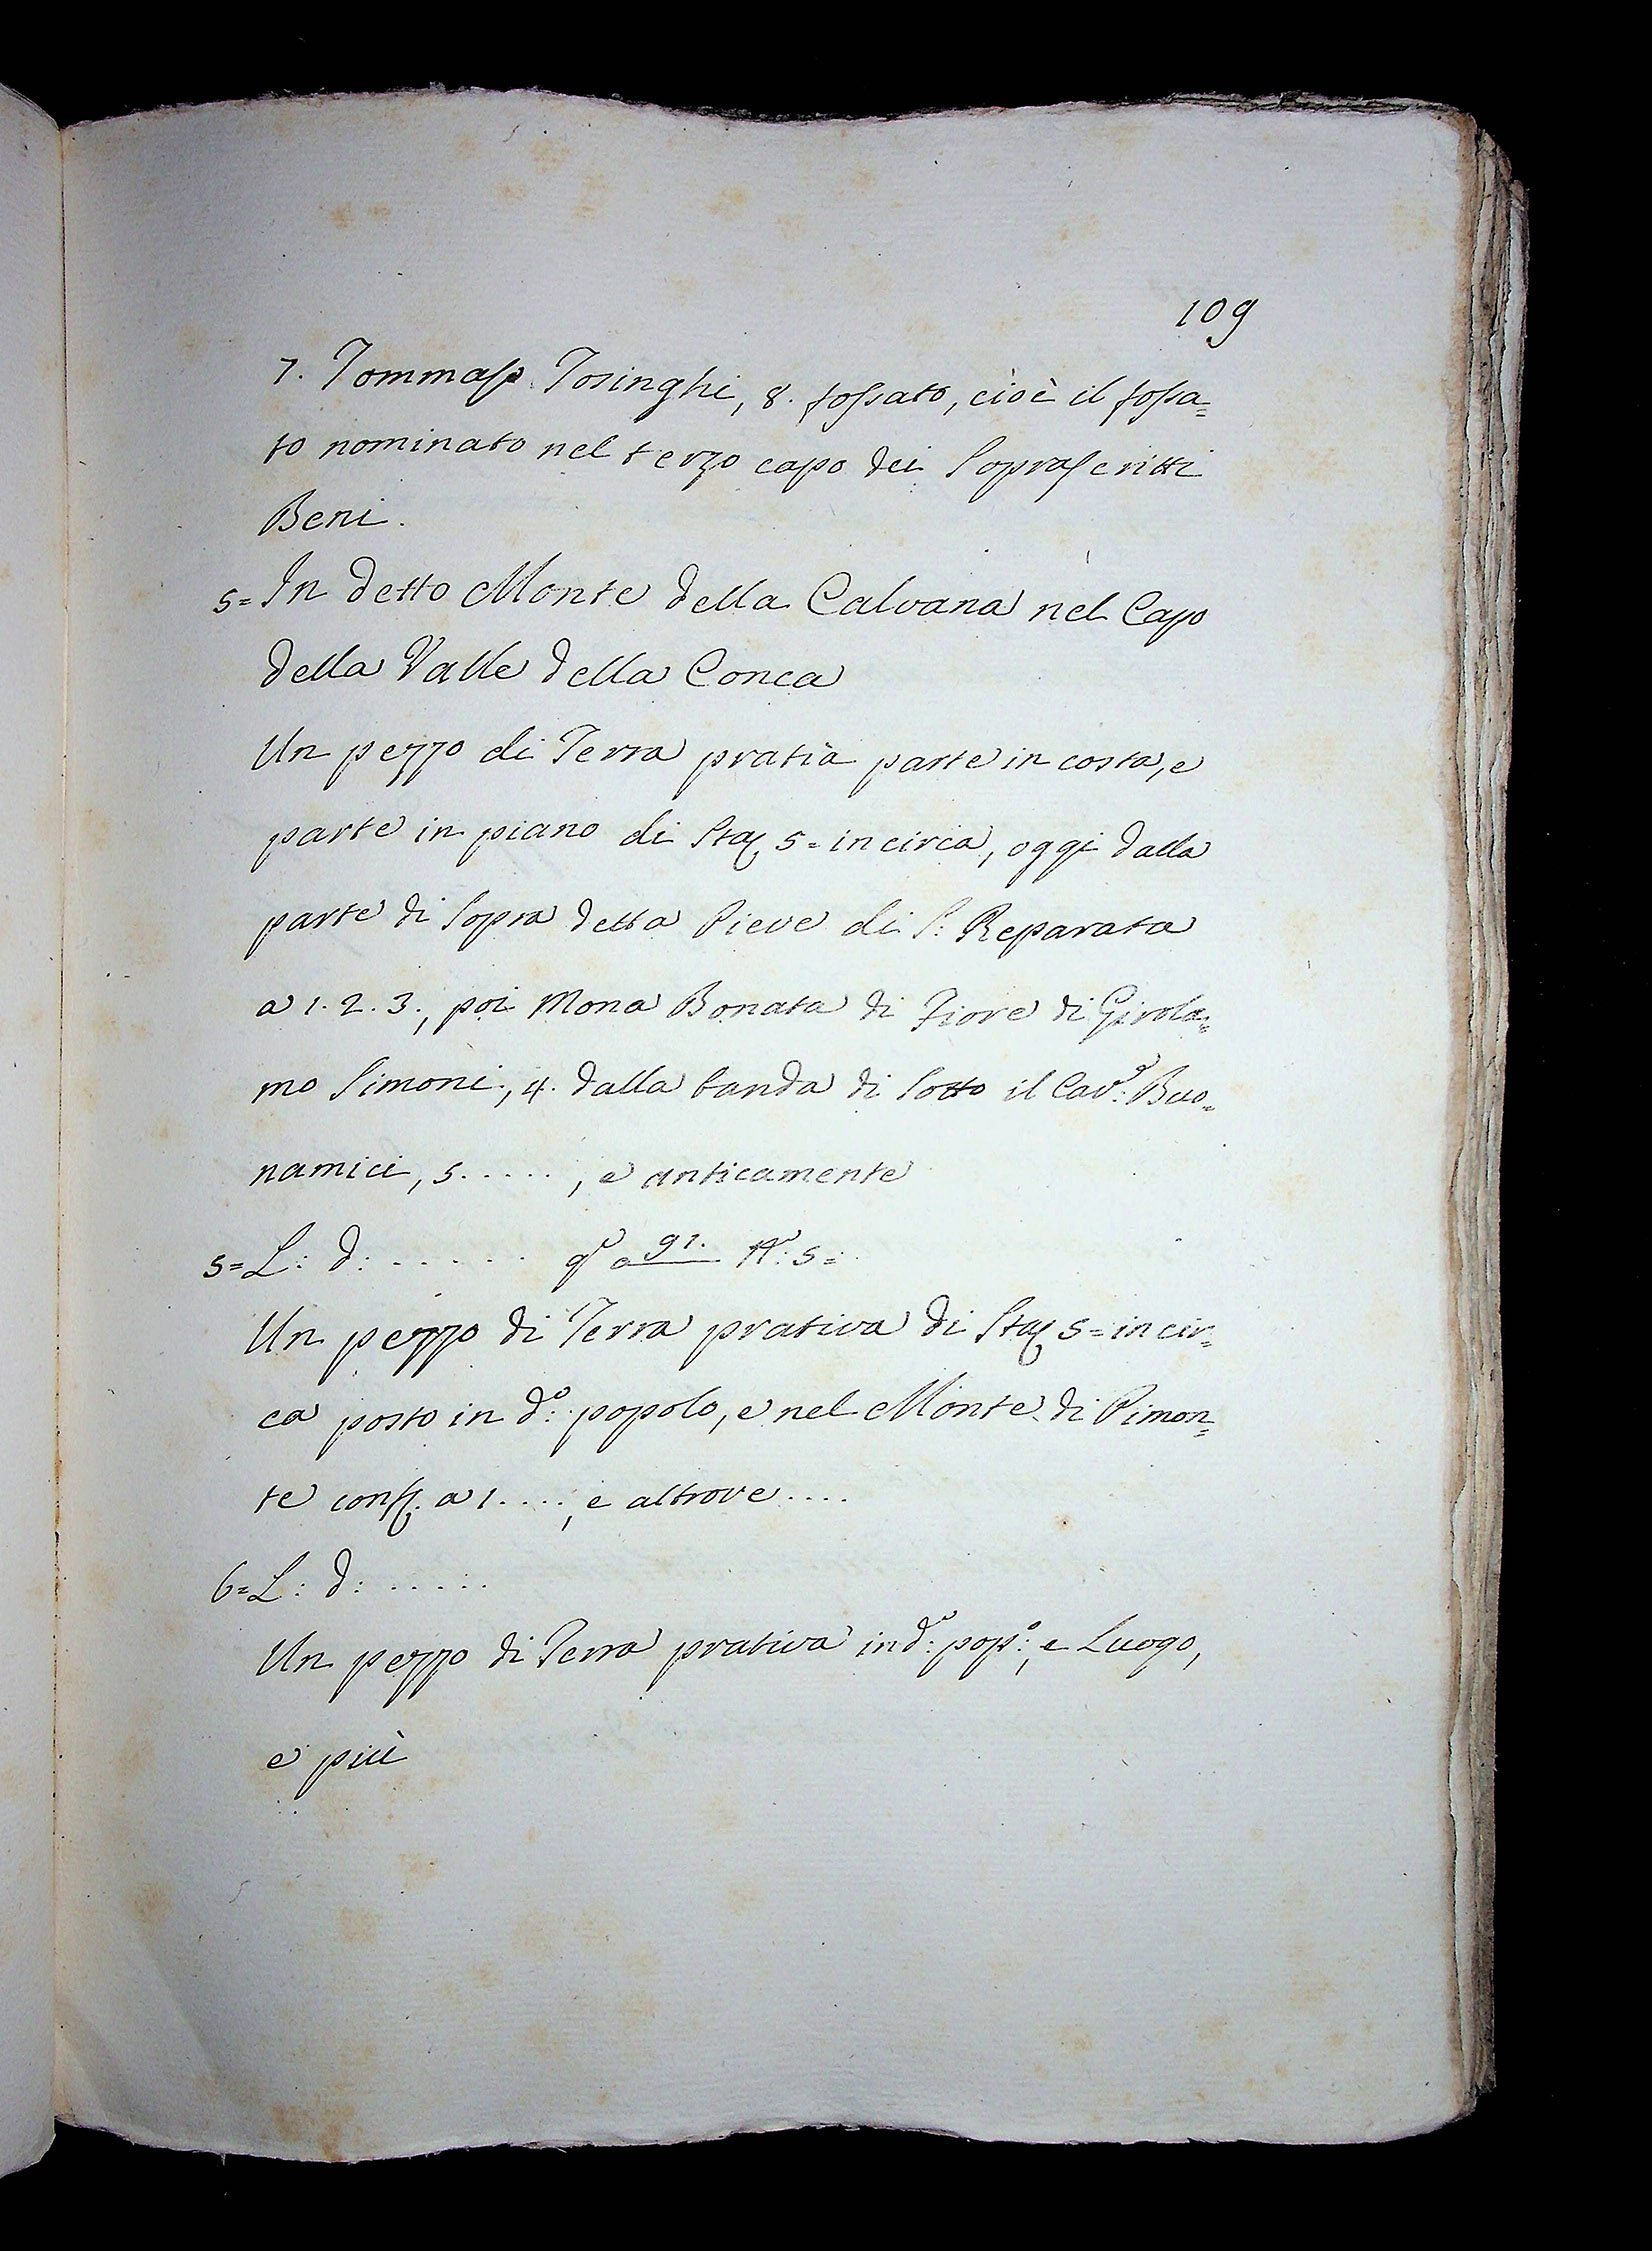 109
7. Tommaso Tosinghi, 8. fossato, cioè il fossa=
to nominato nel terzo capo dei Soprascritti
Beni.
5= In detto Monte della Calvana nel Capo
della Valle della Conca
Un pezzo di Terra pratia parte in costa, e
parte in piano di Sta 5= in circa, oggi dalla
parte di Sopra detta Pieve di S: Reparata
a 1. 2. 3., poi Mona Bonata di Fiore di Girola=
mo Simoni, 4. dalla banda di Sotto il Cav:e Buo=
namici, 5. . . . . , e anticamente
5= L: d: . . . . . . qº a 91. Nº: 5=
Un pezzo di Terra prativa di Sta 5= in cir=
ca posto in dº: popolo, e nel Monte di Pimon=
te conf. a 1. . . . , e altrove . . . .
6= L: d: . . . . .
Un pezzo di Terra prativa in dº: popº:, e Luogo,
e più